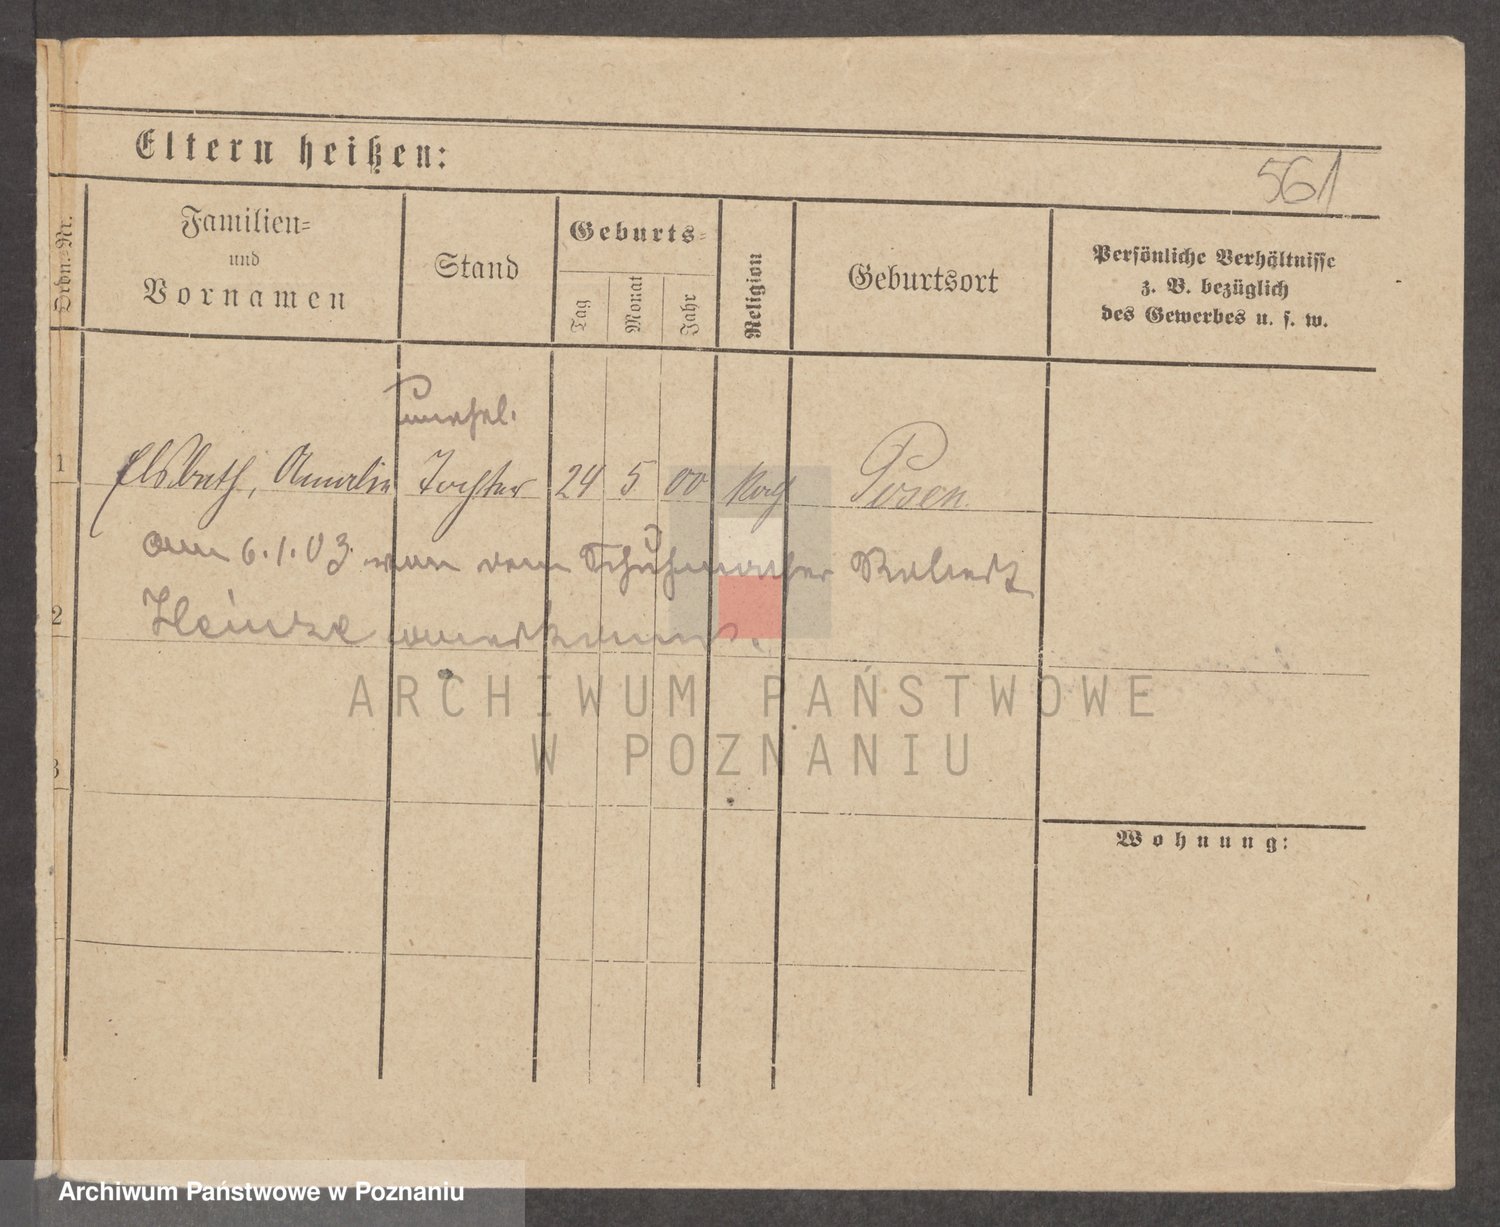 Eltern heißen:
561
Ordn.-Nr.
Familien-
und
Vornamen
Stand
Geburts-
Tag
Monat
Jahr
Religion
Geburtsort
Persönliche Verhältnisse
z. B. bezüglich
des Gewerbes u. s. w.
unehel.
1 Elsbeth, Amalie Tochter 24 5 00 Kath Posen
am 6.1.03 von dem Schuhmacher Robert
2
Heinze anerkannt.
ARCHIWUM PAŃSTWOWE
W POZNANIU
3
Wohnung:
Archiwum Państwowe w Poznaniu